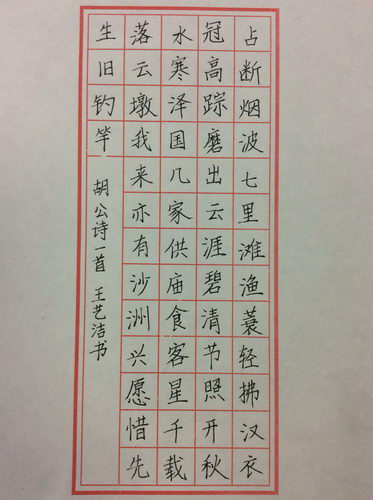 占断烟波七里滩渔蓑轻拂汉衣
冠高踪磨出云涯碧清节照开秋
水寒泽国几家供庙食客星千载
落云墩我来亦有沙洲兴愿惜先
生旧钓竿
胡公诗一首 王艺洁书